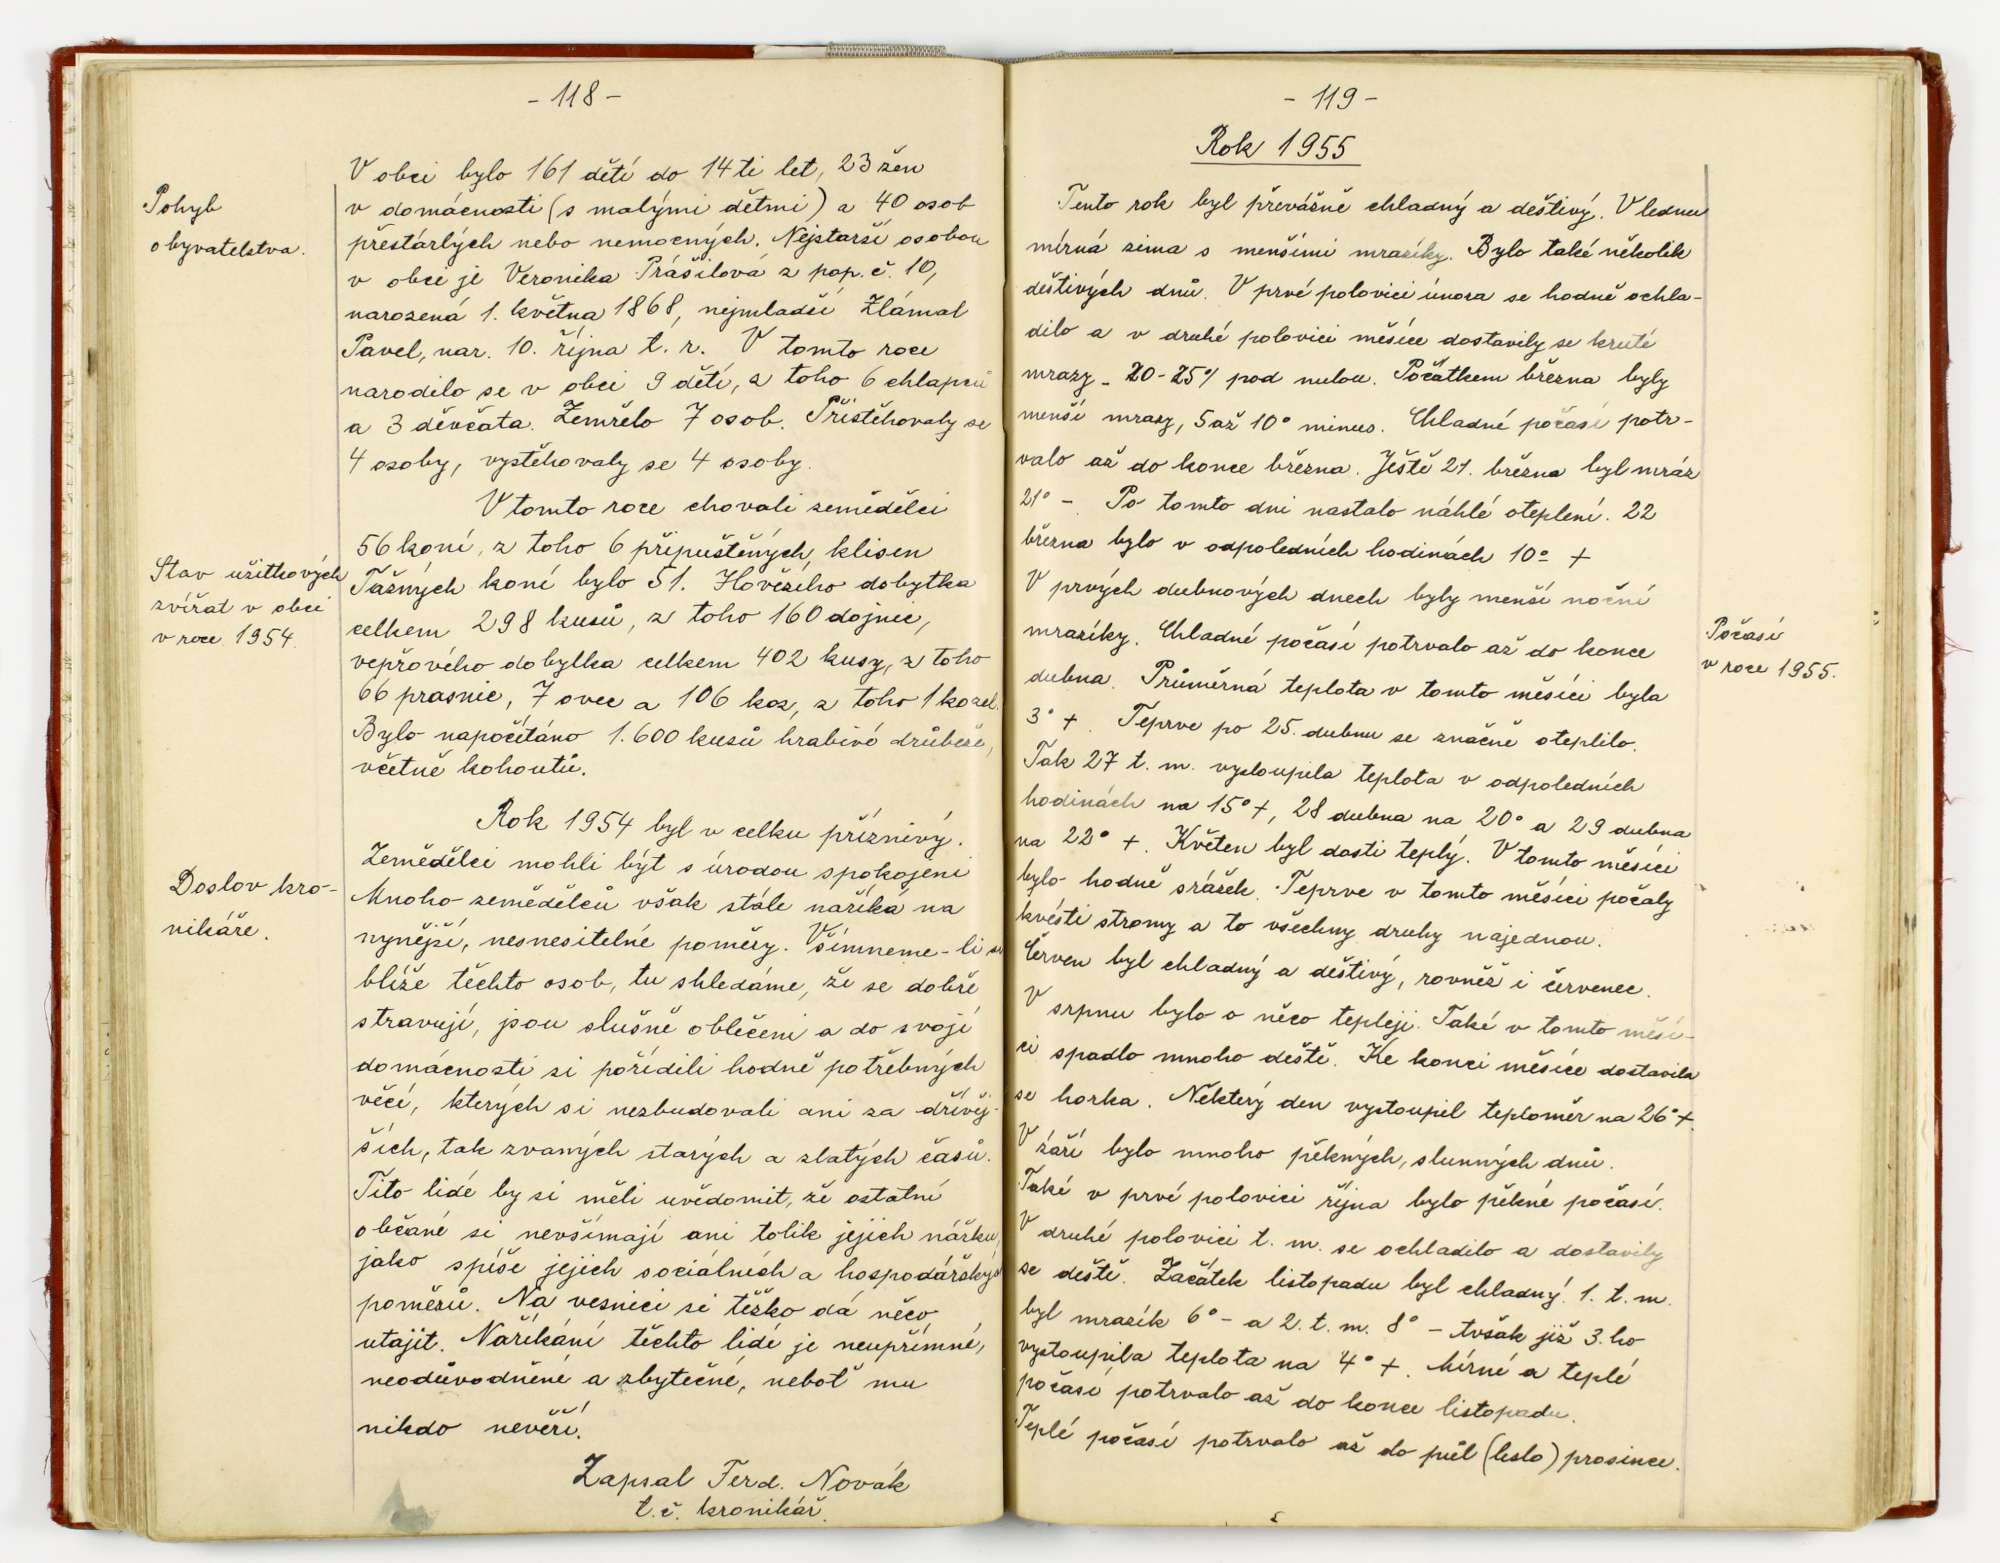 - 118 -
Pohyb
obyvatelstva.
V obci bylo 161 dětí do 14ti let, 23 žen
v domácnosti (s malými dětmi) a 40 osob
přestárlých nebo nemocných. Nejstarší osobou
v obci je Veronika Prášilová z pop. č. 10,
narozená 1. května 1868, nejmladší Zlámal
Pavel, nar. 10. října t. r. V tomto roce
narodilo se v obci 9 dětí, z toho 6 chlapců
a 3 děvčata. Zemřelo 7 osob. Přistěhovaly se
4 osoby, vystěhovaly se 4 osoby.
Stav užitkových
zvířat v obci
v roce 1954.
V tomto roce chovali zemědělci
56 koní, z toho 6 připuštěných klisen
Tažných koní bylo 51. Hovězího dobytka
celkem 298 kusů, z toho 160 dojnic,
vepřového dobytka celkem 402 kusy, z toho
66 prasnic, 7 ovce a 106 koz, z toho 1 kozel.
Bylo napočítáno 1.600 kusů hrabivé drůbeže,
včetně kohoutů.
Doslov kro-
nikáře.
Rok 1954 byl v celku příznivý.
Zemědělci mohli být s úrodou spokojeni
Mnoho zemědělců však stále naříká na
nynější, nesnesitelné poměry. Všimneme-li si
blíže těchto osob, tu shledáme, že se dobře
stravují, jsou slušně oblečeni a do svojí
domácnosti si pořídili hodně potřebných
věcí, kterých si nezbudovali ani za dřívěj-
ších, tak zvaných starých a zlatých časů.
Tito lidé by si měli uvědomit, že ostatní
občané si nevšímají ani tolik jejich nářku,
jako spíše jejich sociálních a hospodářských
poměrů. Na vesnici si těžko dá něco
utajit. Naříkání těchto lidí je neupřímné,
neodůvodněné a zbytečné, neboť mu
nikdo nevěří.
Zapsal Ferd. Novák
t. č. kronikář.
- 119 -
Rok 1955
Tento rok byl převážně chladný a deštivý. V lednu
mírná zima s menšími mrazíky. Bylo také několik
deštivých dnů. V prvé polovici února se hodně ochla-
dilo a v druhé polovici měsíce dostavily se kruté
mrazy - 20-25° pod nulou. Počátkem března byly
menší mrazy, 5 až 10° minus. Chladné počasí potr-
valo až do konce března. Ještě 21. března byl mráz
21° -. Po tomto dni nastalo náhlé oteplení. 22
března bylo v odpoledních hodinách 10° +
V prvých dubnových dnech byly menší noční
mrazíky. Chladné počasí potrvalo až do konce
dubna. Průměrná teplota v tomto měsíci byla
3° +. Teprve po 25. dubnu se značně oteplilo.
Tak 27 t. m. vystoupila teplota v odpoledních
hodinách na 15° +, 28 dubna na 20° a 29 dubna
na 22° +. Květen byl dosti teplý. V tomto měsíci
bylo hodně srážek. Teprve v tomto měsíci počaly
kvésti stromy a to všechny druhy najednou.
Červen byl chladný a deštivý, rovněž i červenec.
V srpnu bylo o něco tepleji. Také v tomto měsí-
ci spadlo mnoho deště. Ke konci měsíce dostavila
se horka. Některý den vystoupil teploměr na 26° +.
V září bylo mnoho pěkných, slunných dnů.
Také v prvé polovici října bylo pěkné počasí.
V druhé polovici t. m. se ochladilo a dostavily
se deště. Začátek listopadu byl chladný. 1. t. m.
byl mrazík 6° - a 2. t. m. 8° - Avšak již 3. ho
vystoupila teplota na 4° +. Mírné a teplé
počasí potrvalo až do konce listopadu.
Teplé počasí potrvalo až do půl (leslo) prosince.
Počasí
v roce 1955.